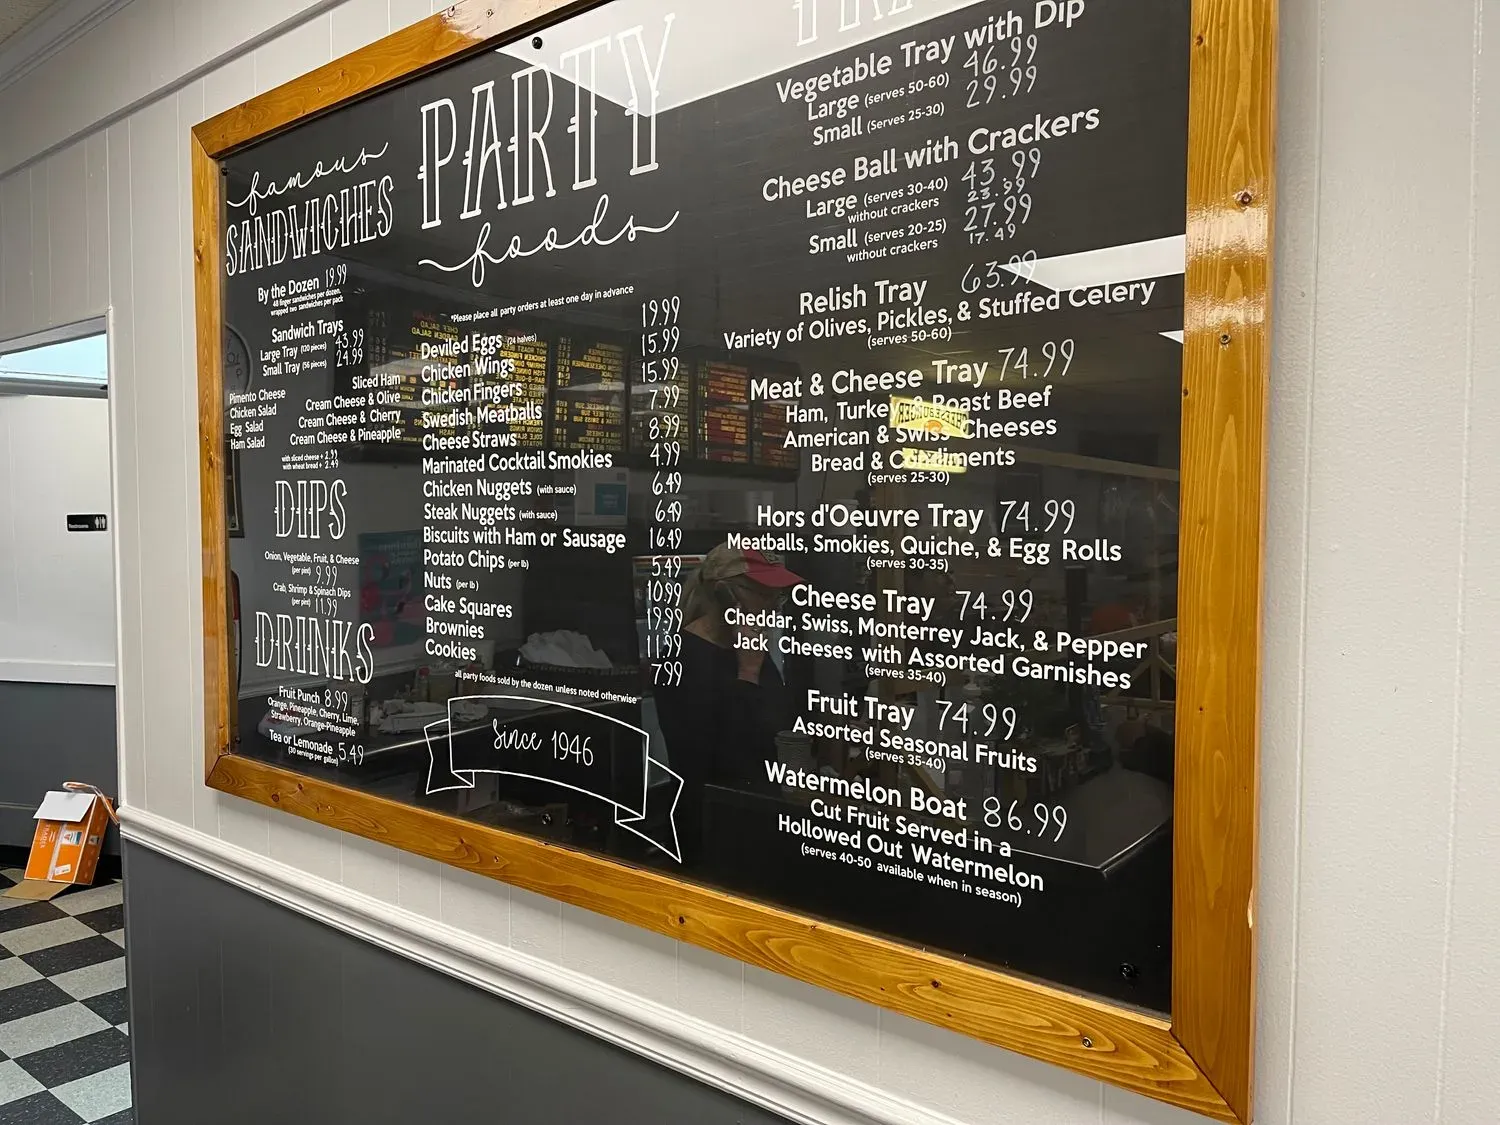 famous
SANDWICHES
By the Dozen 19.99
48 finger sandwiches per dozen,
wrapped two sandwiches per pack
Sandwich Trays
Large Tray (120 pieces) 43.99
Small Tray (56 pieces) 24.99
Pimento Cheese
Chicken Salad
Egg Salad
Ham Salad
Sliced Ham
Cream Cheese & Olive
Cream Cheese & Cherry
Cream Cheese & Pineapple
with sliced cheese + 2.99
with wheat bread + 2.49
DIPS
Onion, Vegetable, Fruit, & Cheese
(per pint) 9.99
Crab, Shrimp & Spinach Dips
(per pint) 11.99
DRINKS
Fruit Punch 8.99
Orange, Pineapple, Cherry, Lime,
Strawberry, Orange-Pineapple
Tea or Lemonade 5.49
(30 servings per gallon)
PARTY
foods
*Please place all party orders at least one day in advance
Deviled Eggs (24 halves) 19.99
Chicken Wings 15.99
Chicken Fingers 15.99
Swedish Meatballs 7.99
Cheese Straws 8.99
Marinated Cocktail Smokies 4.99
Chicken Nuggets (with sauce) 6.49
Steak Nuggets (with sauce) 6.49
Biscuits with Ham or Sausage 16.49
Potato Chips (per lb) 5.49
Nuts (per lb) 10.99
Cake Squares 19.99
Brownies 11.99
Cookies 7.99
all party foods sold by the dozen unless noted otherwise
since 1946
Vegetable Tray with Dip
Large (serves 50-60) 46.99
Small (Serves 25-30) 29.99
Cheese Ball with Crackers
Large (serves 30-40) 43.99
without crackers 23.99
Small (serves 20-25) 27.99
without crackers 17.49
Relish Tray 63.99
Variety of Olives, Pickles, & Stuffed Celery
(serves 50-60)
Meat & Cheese Tray 74.99
Ham, Turkey, & Roast Beef
American & Swiss Cheeses
Bread & Condiments
(serves 25-30)
Hors d'Oeuvre Tray 74.99
Meatballs, Smokies, Quiche, & Egg Rolls
(serves 30-35)
Cheese Tray 74.99
Cheddar, Swiss, Monterrey Jack, & Pepper
Jack Cheeses with Assorted Garnishes
(serves 35-40)
Fruit Tray 74.99
Assorted Seasonal Fruits
(serves 35-40)
Watermelon Boat 86.99
Cut Fruit Served in a
Hollowed Out Watermelon
(serves 40-50 available when in season)